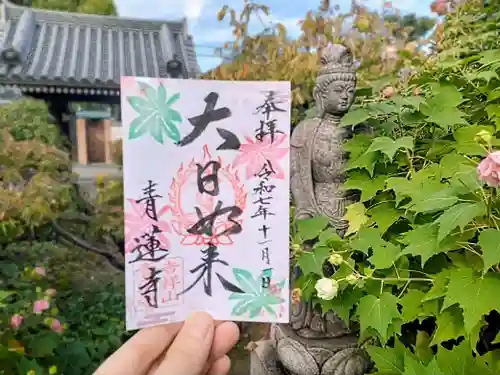 奉拝
令和七年十一月 日
大日如来
青蓮寺